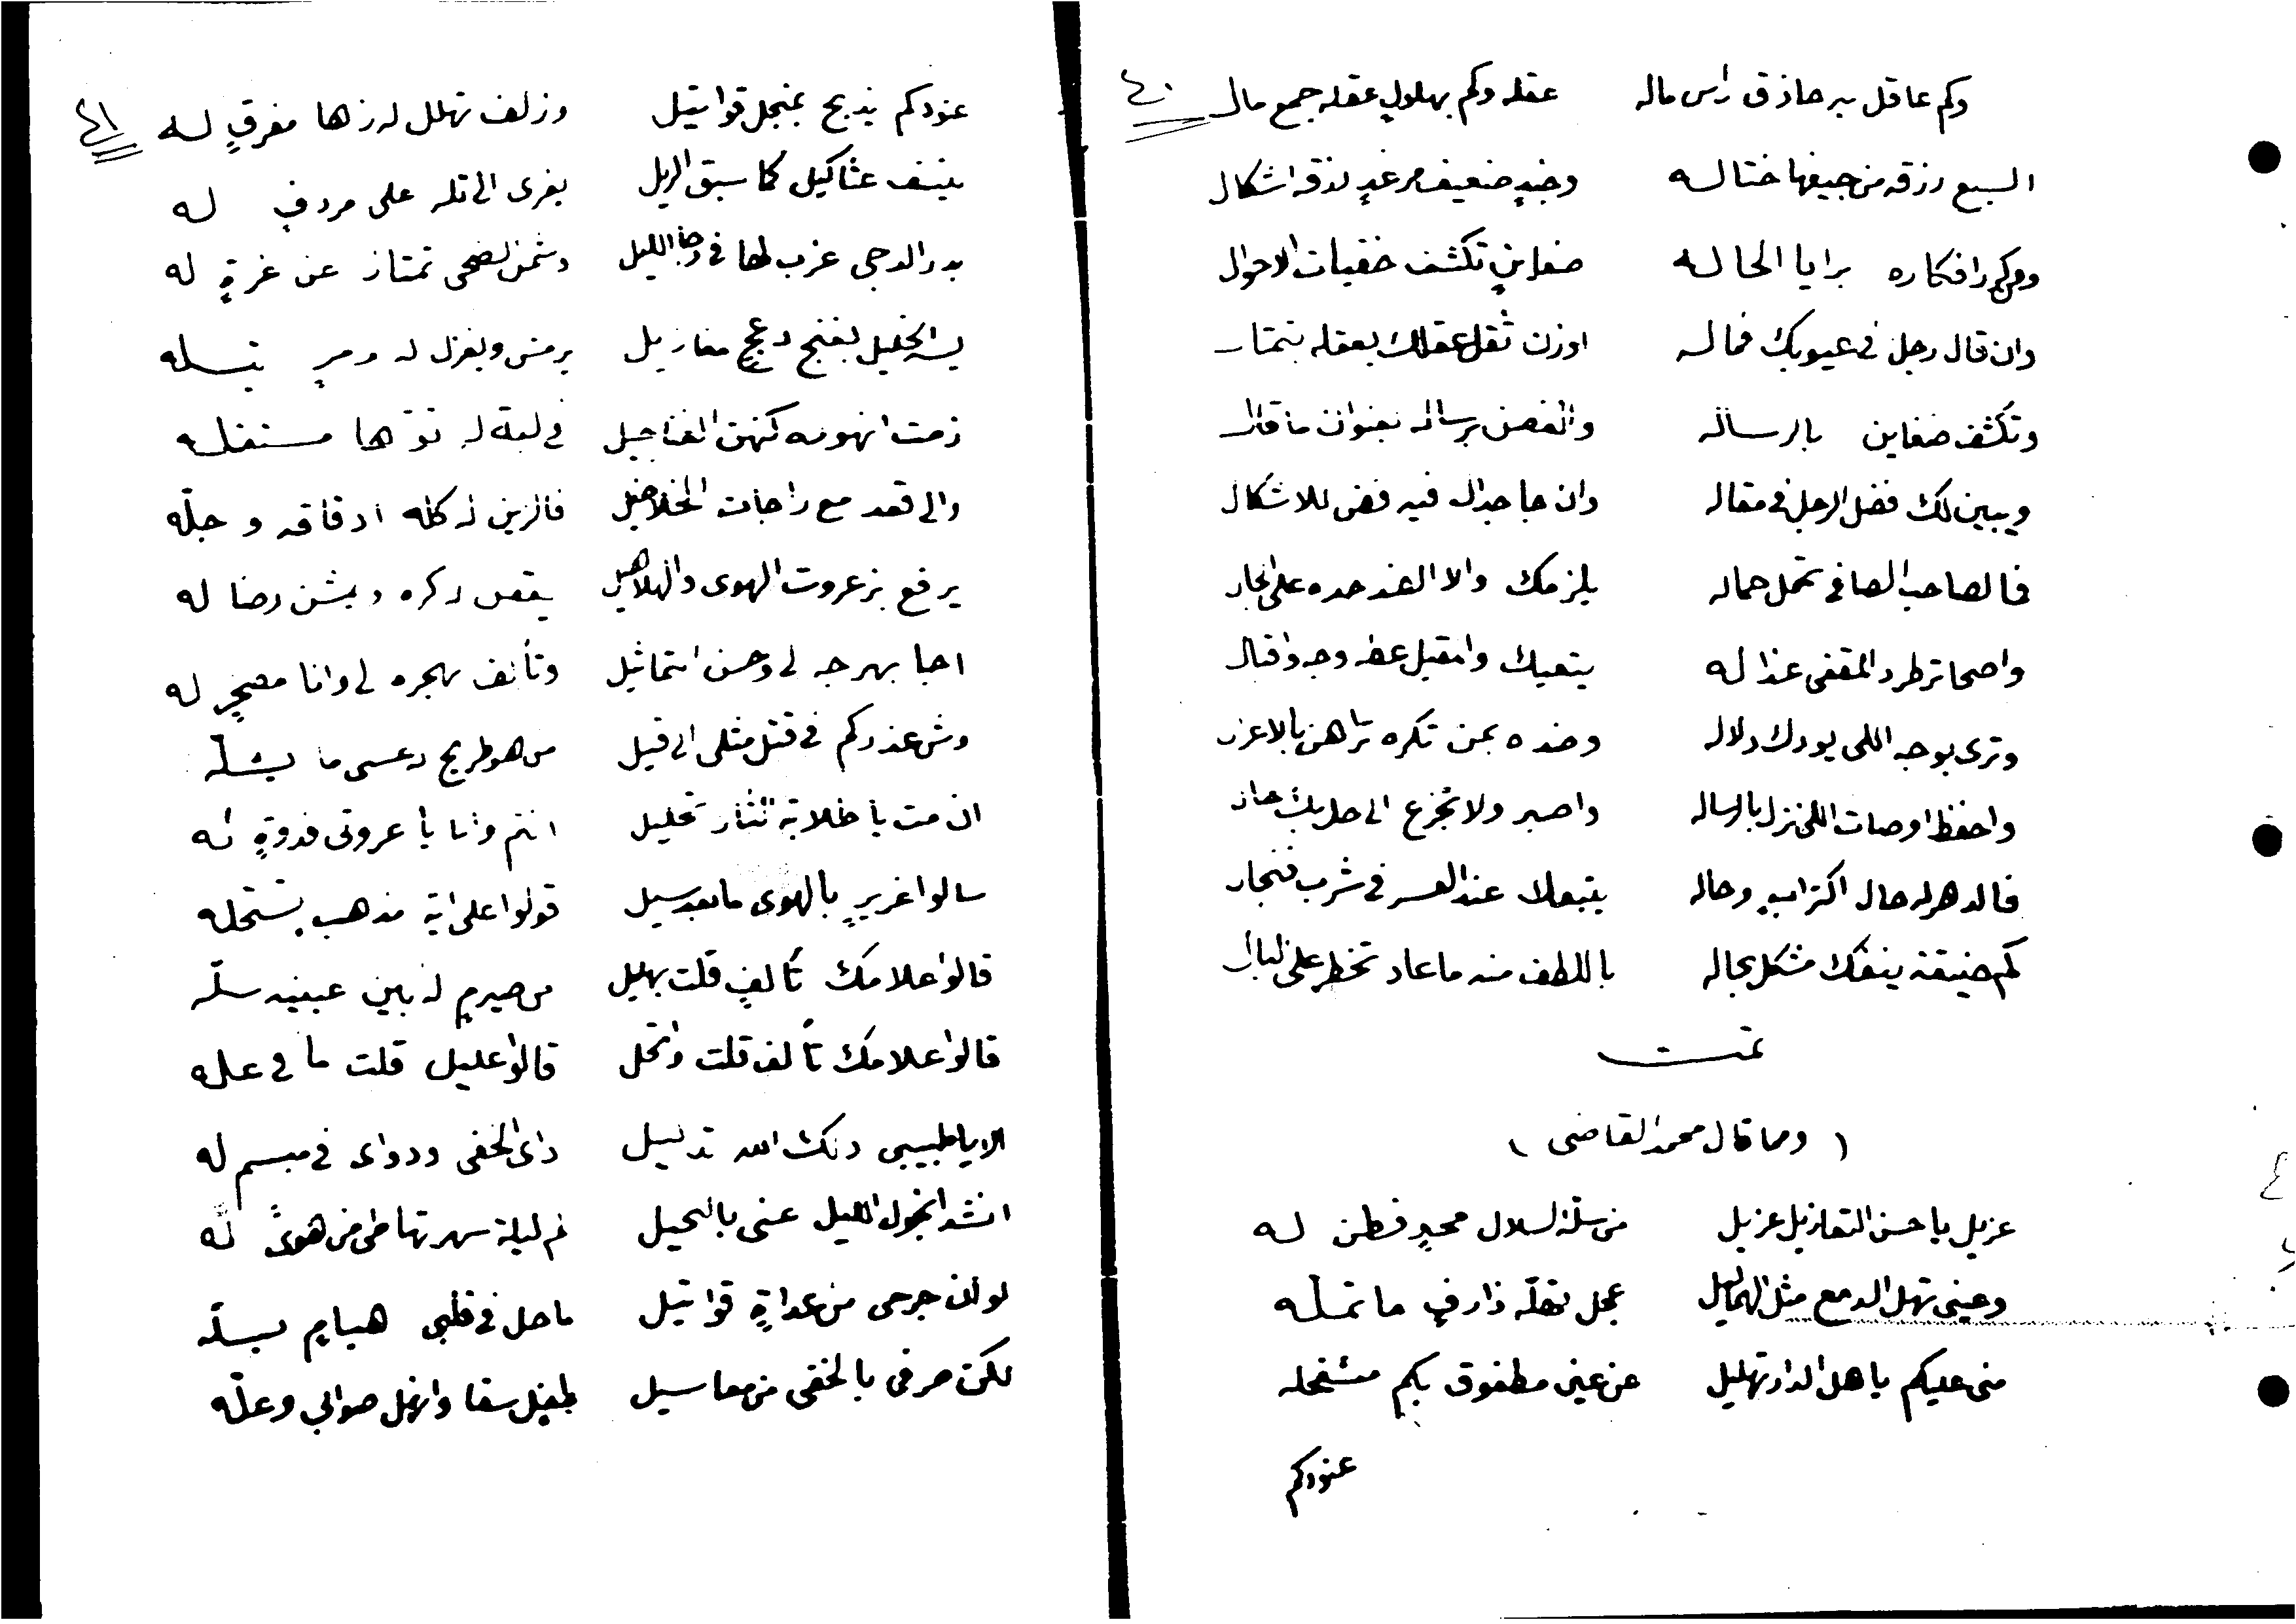 ٤٠
وكم عاقل به حاذق راس ماله عقله وكم بهلول عقله جمع مال
السبع رزقه من جيفها ختاله وضبٍ ضعيف مرغدٍ رزقه اشكال
افكاره برايا الحاله ضغاينٍ تكشف خفيات الاحوال
وان قال رجل في عيوبك فماله اوزن ثقل عقلك بعقله بتمتار
وتكشف ضغاين بالرساله والغصن برساله بعنوان ما قال
ويبين لك فضل الرجل في مقاله وان جا جدال فيه فض للاشكال
فالصاحب الصافي تحمل حماله يلزمك والا الضد حده على الجار
واصحا ترطرد المقفي عذاله يتعبك وامقبل عطه وجه واقبال
وترى بوجه اللي يودك دلاله وضده بمن تكره تراهن بالاعزال
واحفظ اوصات اللي نزل بالرساله واصبر ولا تجزع الى حل بك حال
فالدهر له حال اكترابٍ وحاله يتبعلا عند العسر في شرب فنجال
كم ضيقة ينفك مشكل بحاله باللطف منه ما عاد تخطر على البال
تمت
( ومما قال محمد القاضي )
عزيل يا حسن التعازيل عزيل من سلة السلال محدٍ فطن له
وعيني تهل الدمع مثل الهماليل عجل تهله ذارفٍ ما تمله
مني عليكم يا هل الدار تهليل عن عين مطفوق بكم مشغله
عنودكم
٤١
عنودكم يذبح بمنجل قواتيل وزلف تهلل له زها مفرقٍ له
ينسف عثاكيل كما سبق الريل يغرى الى تله على مردفٍ له
بدر الدجى غرب لها في دجا الليل وشمس الضحى تمتاز عن غرةٍ له
بغنج دعجٍ مغازيل يرمش ويغزل له
زمت انهوده كنهن الفناجيل في لبة له توّها مستقله
والى قعد مع زاجات الخلاخيل فالزين له كله ادقاقه وجلّه
يرفع بزعروت الهوى والهلاهيل ينقص ذكره وبشن رضا له
احيا بهرجه لي وحسن التماثيل وتألف بهجره لي وانا مصحيٍ له
وش عذركم في قتل مثلي الى قيل من هو طريح له عسى ما يشلّه
ان مت يا خلا بة الثار تحليل انتم وانا يا عروتي فدوةٍ له
سالوا غريرٍ بالهوى ما بعد سيل قولوا على اية مذهب يستحله
قالوا علامك تالفٍ قلت بهليل من صيرمٍ له بين عينيه سلّه
قالوا علامك تالف قلت وانحل قالوا عليل قلت ما في عله
الا يا طبيبي دلك الله تدليل داى الخفي ودواى في مبسم له
انشد انجول الليل عني بالحيل كم ليلة سهرتها طى من هوى له
لو ان جرحى من عداةٍ قواتيل ما حل في قلبي هيامٍ يسلّه
لكن صرفى بالخفى من معاسيل طفيل سقا وانهل صوابي وعلّه